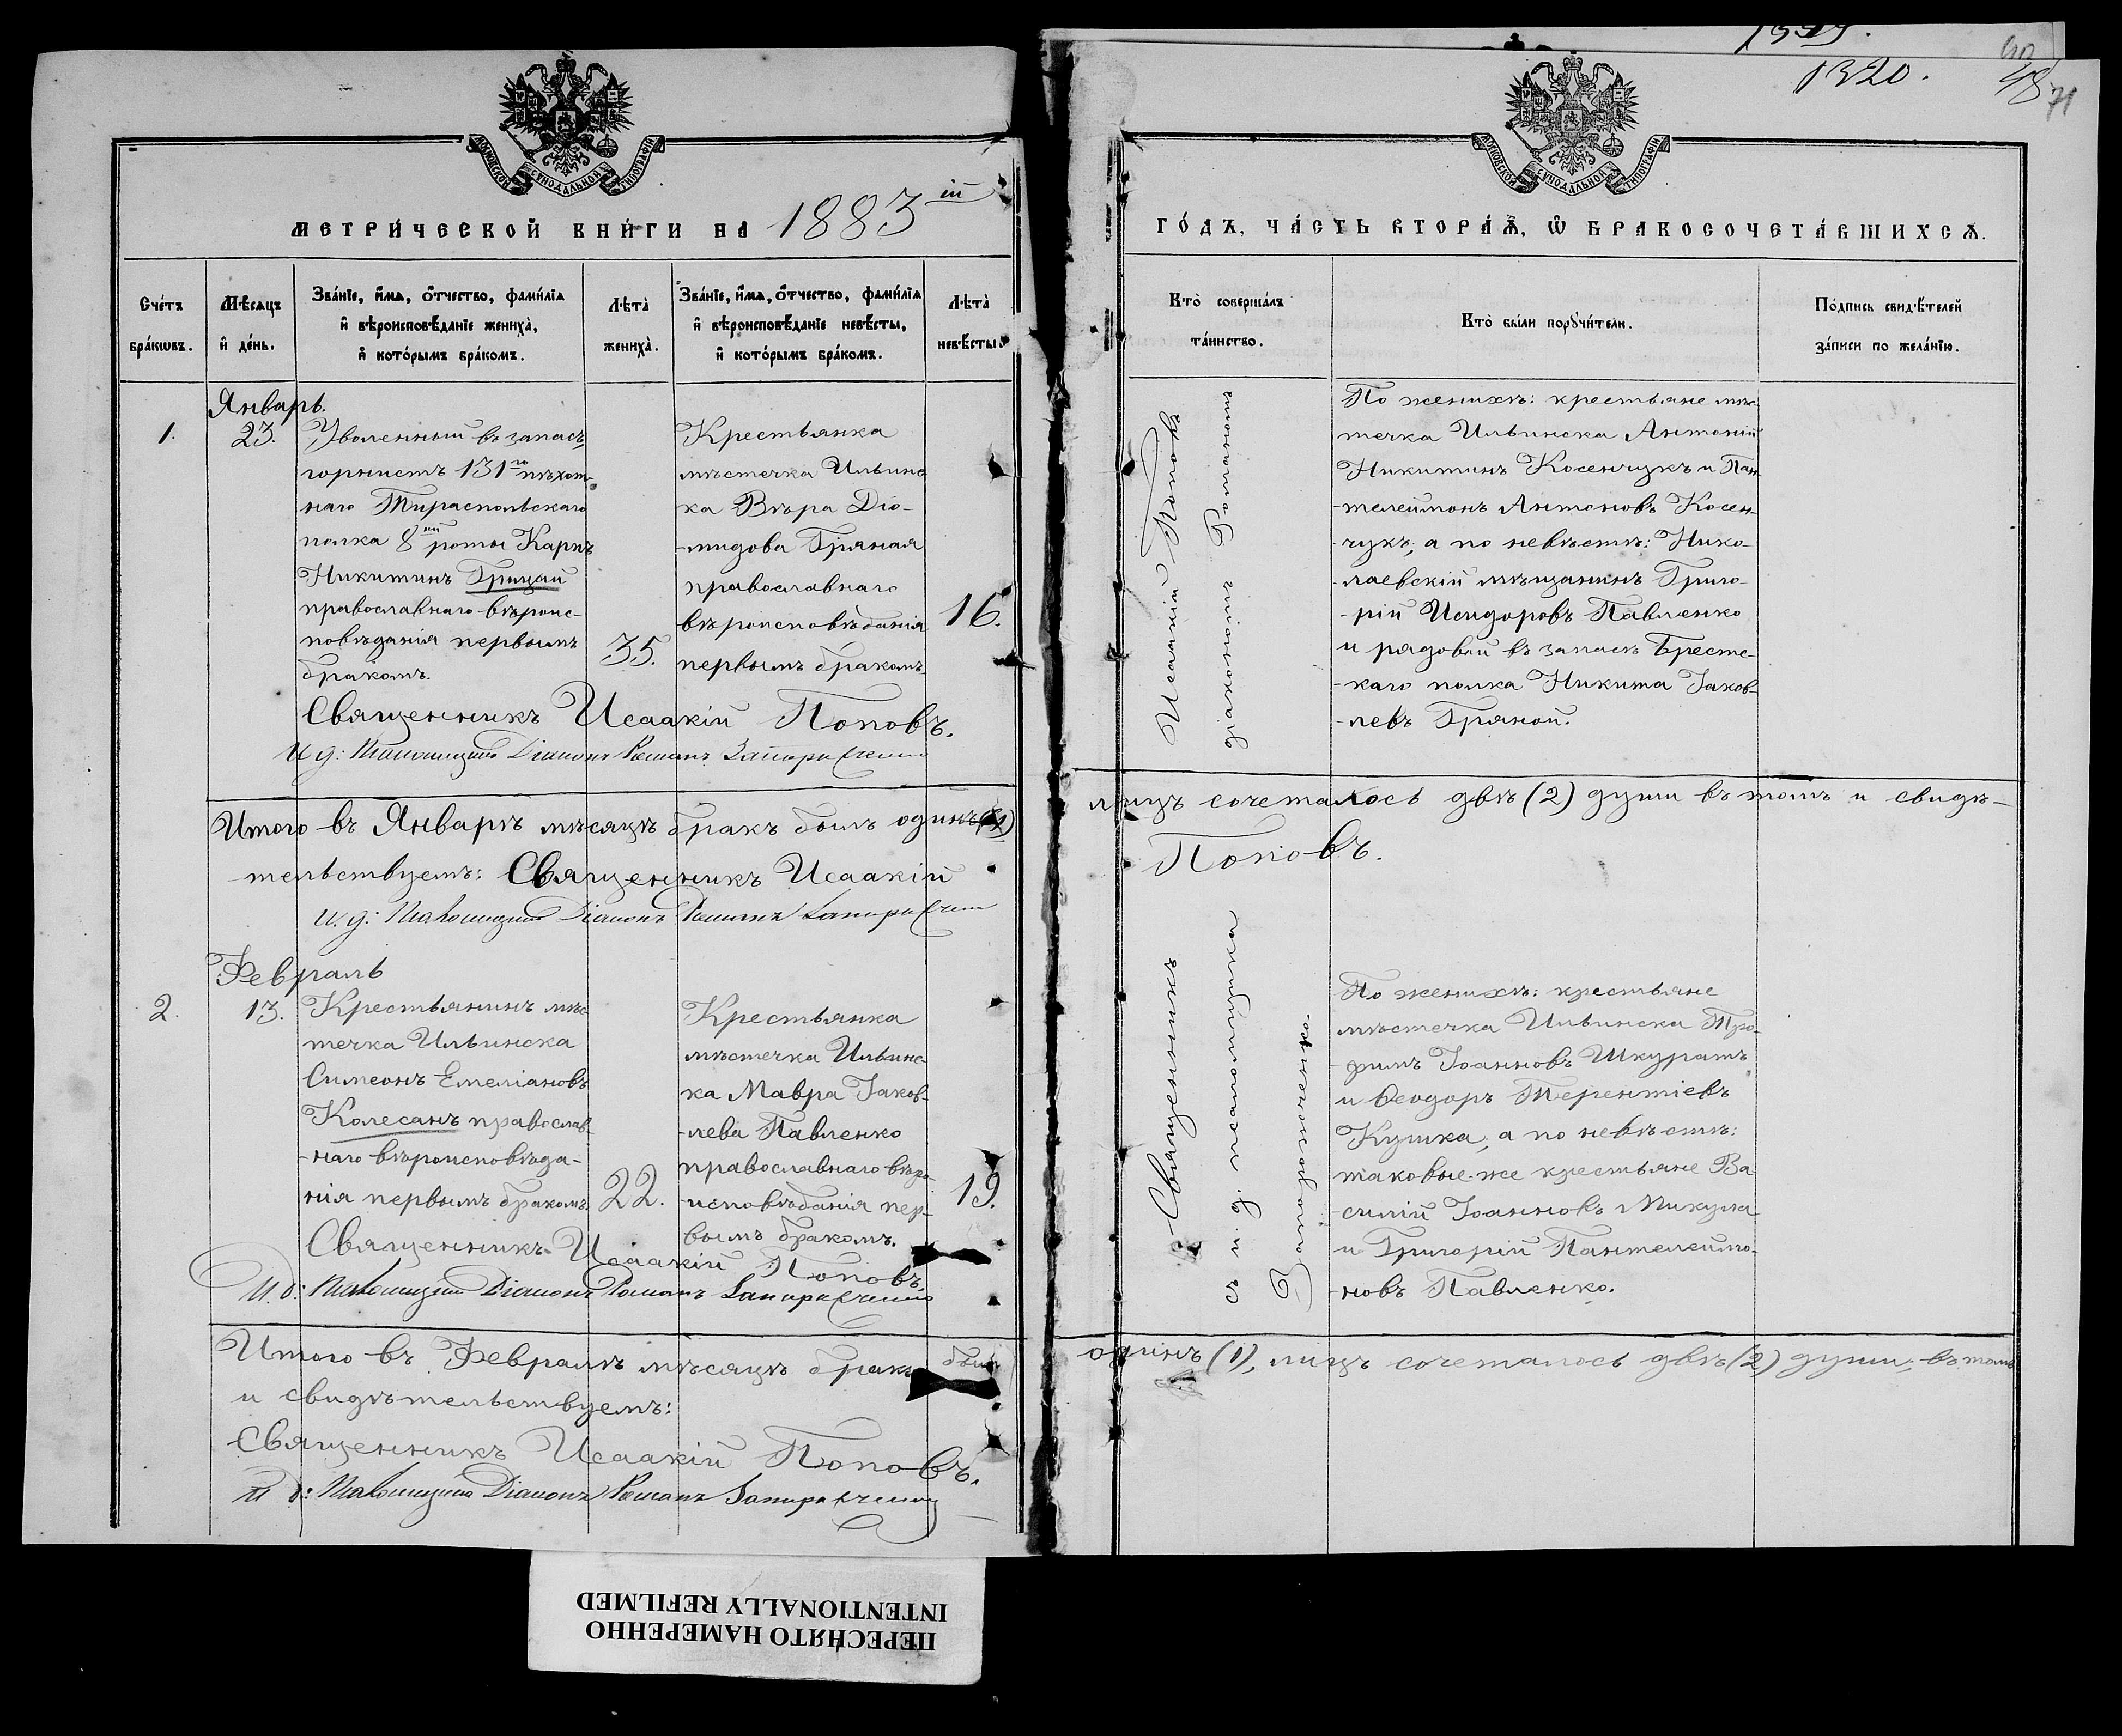 1319.
1320.
40
48
71
МОСКОВСКОЙ СѴНОДАЛЬНОЙ ТИПОГРАФІИ
МОСКОВСКОЙ СѴНОДАЛЬНОЙ ТИПОГРАФІИ
МЕТРИ́ЧЕСКОЙ КНИ́ГИ НА 1883 ій
ГО́ДЪ, ЧА́СТЬ ВТОРА́Ѧ, Ѡ҆ БРАКОСОЧЕТА́ВШИХСѦ.
Сче́тъ бра́кѡвъ.
Мѣ́сяцъ и҆ де́нь.
Зва́нїе, и҆́мѧ, ѻ҆́тчество, фами́лїѧ
и҆ вѣроисповѣ́данїе жениха̀,
и҆ кото́рымъ бра́комъ.
Лѣта̀ жениха̀.
Зва́нїе, и҆́мѧ, ѻ҆́тчество, фами́лїѧ
и҆ вѣроисповѣ́данїе невѣ́сты,
и҆ кото́рымъ бра́комъ.
Лѣта̀ невѣ́сты.
Кто̀ соверша́лъ
та́инство.
Кто̀ бы́ли порꙋчи́тели.
По́дпись свидѣ́телей
за́писи по жела́нїю.
Январь.
1.
23.
Уволенный въ запасъ,
горнистъ 131го пѣхот-
наго Тираспольскаго
полка 8ой роты Карпъ
Никитинъ Грицай
православнаго вѣроис-
повѣданія первымъ
бракомъ.
35.
Крестьянка
мѣстечка Ильинс
ка Вѣра Діо-
-мидова Гряная
православнаго
вѣроисповѣданія
первымъ бракомъ.
16.
Исаакій Поповъ
діакономъ Романомъ
По женихѣ: крестьяне мѣс-
течка Ильинска Антоній
Никитинъ Косенчукъ и Пан-
телеймонъ Антоновъ Косен-
чукъ, а по невѣстѣ: Нико-
лаевскій мѣщанинъ Григо-
-рій Исидоровъ Павленко
и рядовой въ запасѣ Брестс-
каго полка Никита Іаков-
-левъ Гряной.
Священникъ Исаакій Поповъ.
И д: Псаломщика Діаконъ Романъ Запорожченко
Итого въ Январѣ мѣсяцѣ бракъ былъ одинъ (1)
лицъ сочеталось двѣ (2) души въ томъ и свидѣ-
-тельствуемъ: Священникъ Исаакій
Поповъ.
и. д: Псаломщика Діаконъ Романъ Запорожченко
Февраль
2.
13.
Крестьянинъ мѣс
течка Ильинска
Симеонъ Емеліановъ
Колесанъ православ-
-наго вѣроисповѣда-
нія первымъ бракомъ.
22.
Крестьянка
мѣстечка Ильинс-
ка Мавра Іаков-
-лева Павленко
православнаго вѣро-
исповѣданія пер-
вымъ бракомъ.
19.
Священникъ
съ и д. псаломщика
Запорожченко.
По женихѣ: крестьяне
мѣстечка Ильинска Тро-
-фимъ Іоанновъ Шкуратъ
и Ѳеодоръ Терентіевъ
Кушка, а по невѣстѣ:
таковые-же крестьяне Ва
-силій Іоанновъ Микула
и Григорій Пантелеймо-
новъ Павленко.
Священникъ Исаакій Поповъ.
И. д: Псаломщика Діаконъ Романъ Запорожченко
Итого въ Февралѣ мѣсяцѣ бракъ былъ
одинъ (1), лицъ сочеталось двѣ (2) души, въ томъ
и свидѣтельствуемъ:
Священникъ Исаакій Поповъ.
И д: Псаломщика Діаконъ Романъ Запорожченко
ПЕРЕСНЯТО НАМЕРЕННО
INTENTIONALLY REFILMED